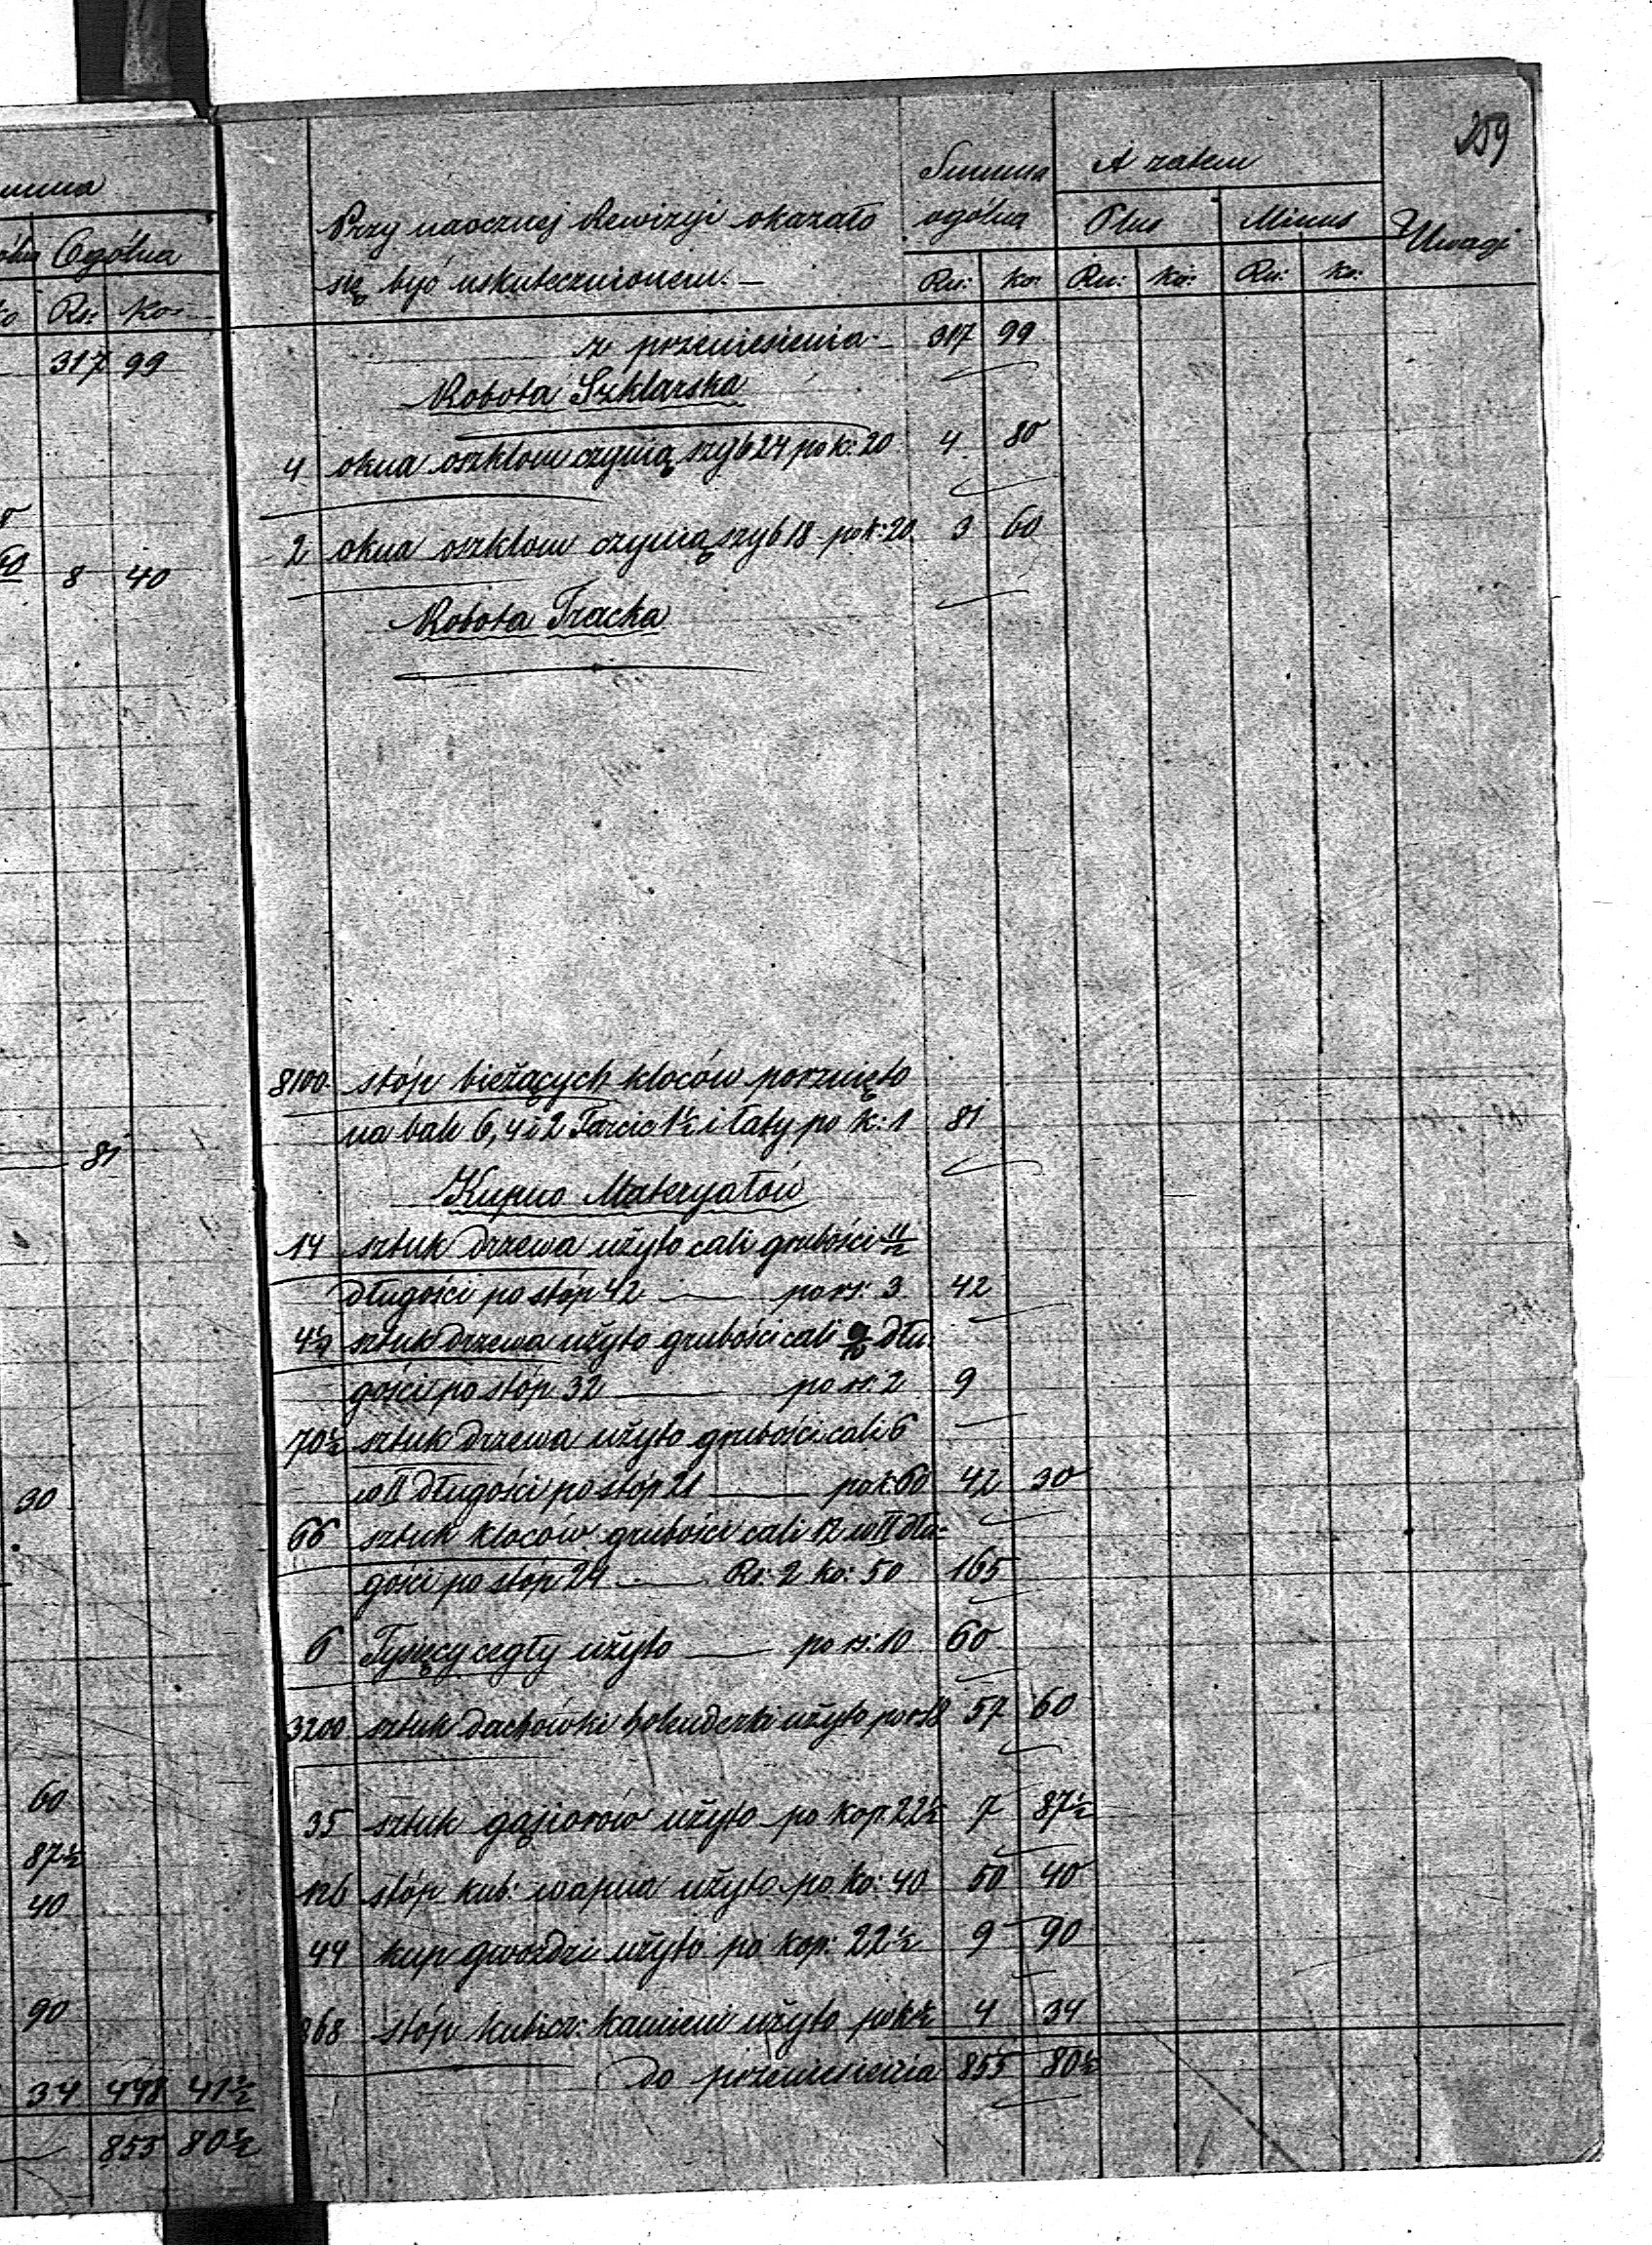 259
umma
Ogólna
Rs: ko
317 99
40 8 40
81
30
60
87½
40
90
34 448 41½
855 80½
Przy naocznej Rewizyi okazało
się być uskutecznionem.—
Summa
ogólna
A zatem
Plus
Minus
Uwagi
Rs: ko: Rs: ko: Rs: ko:
z przeniesienia 317 99
Robota Szklarska
4 okna oszklono czynią szyb 24 po k: 20 4 80
2 okna oszklono czynią szyb 18 po k: 20 3 60
Robota Tracka
8100 stóp bieżących kloców porznięto
na bale 6, 4 i 2 Tarcic 1½ i łaty po k: 1 81
Kupno Materyałów
14 sztuk drzewa użyto cali grubości 11/12
długości po stóp 42 — po rs: 3 42
4½ sztuk drzewa użyto grubości cali dłu-
gości po stóp 32 — po rs: 2 9
70½ sztuk drzewa użyto grubości cali 6
w II długości po stóp 21 — po k: 60 42 30
66 sztuk kloców grubości cali 12 w II dłu-
gości po stóp 24 — Rs: 2 ko: 50 165
6 Tysięcy cegły użyto — po rs: 10 60
3200 sztuk dachówki holenderki użyto po rs 18 57 60
35 sztuk gąsiorów użyto po kop: 22½ 7 87½
126 stóp kub: wapna użyto po ko: 40 50 40
44 kup gwoździ użyto po kop: 22½ 9 90
868 stóp kubicz: kamieni użyto po k ½ 4 34
do przeniesienia 855 80½